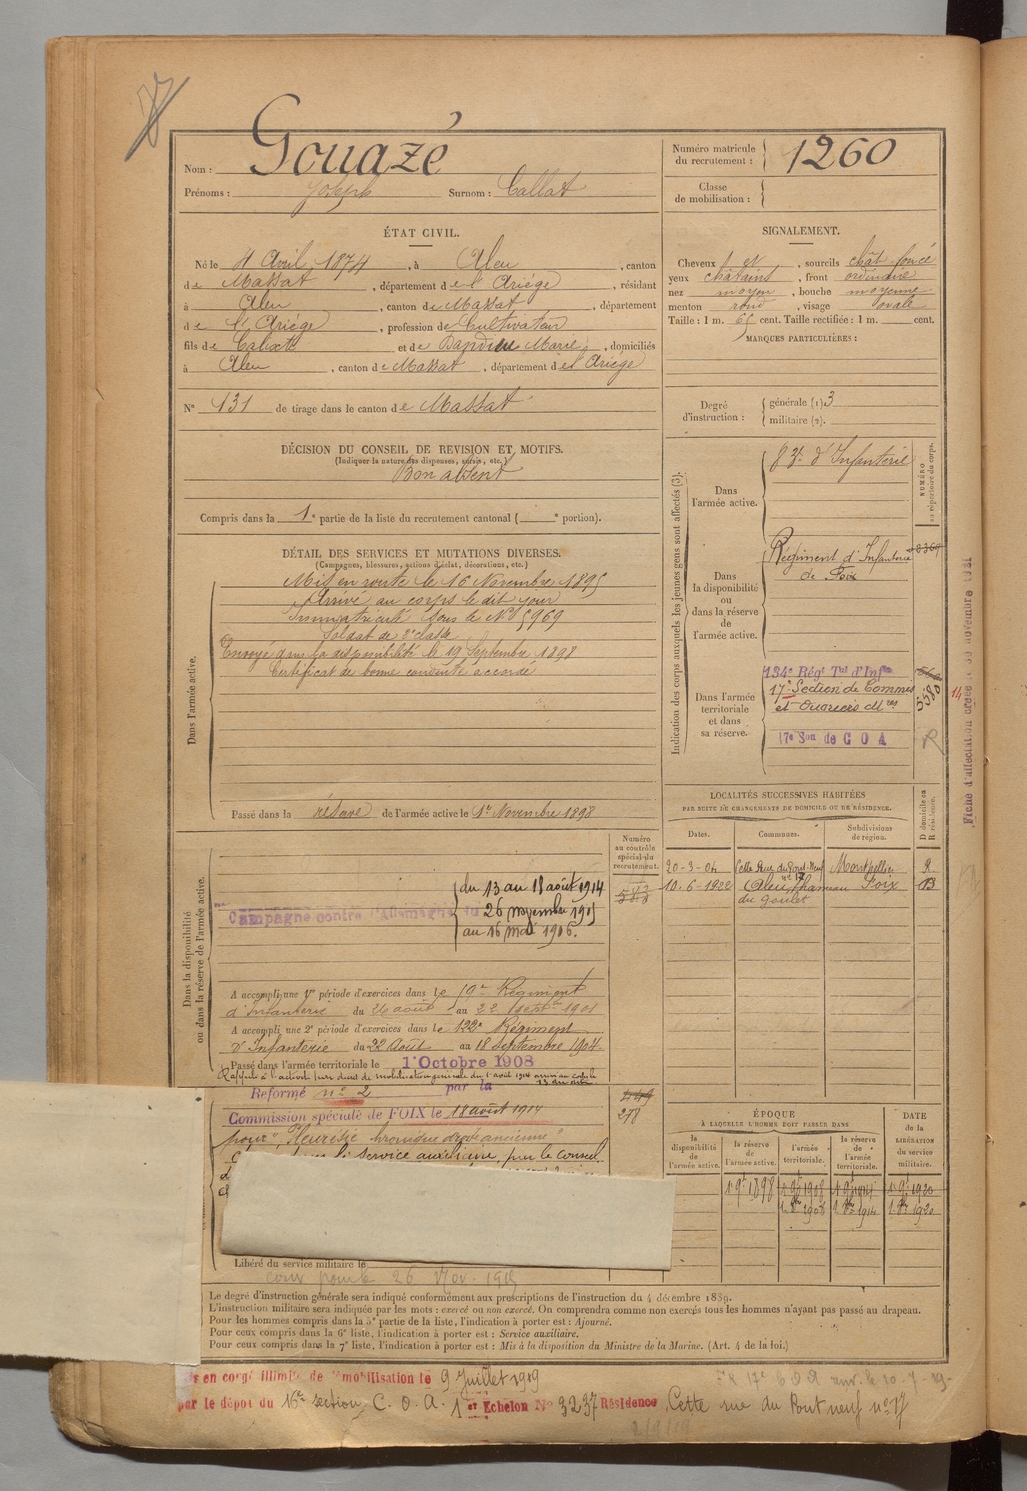 Nom : Gouazé
Prénoms : Joseph Surnom : Callat
Numéro matricule du recrutement : 1260
Classe de mobilisation :
ÉTAT CIVIL.
Né le 4 Avril 1874, à Aleu, canton
de Massat, département de l'Ariège, résidant
à Aleu, canton de Massat, département
de l'Ariège, profession de Cultivateur
fils de Calixte et de Marie, domiciliés
à Aleu, canton de Massat, département de l'Ariège
N° 131 de tirage dans le canton de Massat
SIGNALEMENT.
Cheveux et, sourcils chât. foncé
yeux châtains, front ordinaire
nez moyen, bouche moyenne
menton rond, visage ovale
Taille : 1 m. 65 cent. Taille rectifiée : 1 m. cent.
MARQUES PARTICULIÈRES :
Degré d'instruction :
générale (1) 3
militaire (2).
DÉCISION DU CONSEIL DE REVISION ET MOTIFS.
(Indiquer la nature des dispenses, sursis, etc.)
Bon absent
Compris dans la 1e partie de la liste du recrutement cantonal ( e portion).
DÉTAIL DES SERVICES ET MUTATIONS DIVERSES.
(Campagnes, blessures, actions d'éclat, décorations, etc.)
Dans l'armée active.
Mis en route le 16 Novembre 1895
Arrivé au corps le dit jour
Immatriculé sous le N° 5969
Soldat de 2e classe
Envoyé dans la disponibilité le 19 Septembre 1898
Certificat de bonne conduite accordé
Passé dans la réserve de l'armée active le 1er Novembre 1898
Indication des corps auxquels les jeunes gens sont affectés (3).
NUMÉRO au répertoire du corps.
Dans l'armée active.
83e d'Infanterie
Dans la disponibilité ou dans la réserve de l'armée active.
Régiment d'Infanterie
de Foix
Dans l'armée territoriale et dans sa réserve.
134e Régt Tal d'Infie
17e Section de Commis
et Ouvriers Mres
5580
17e Son de COA
Fiche d'affectation novembre
LOCALITÉS SUCCESSIVES HABITÉES
PAR SUITE DE CHANGEMENTS DE DOMICILE OU DE RÉSIDENCE.
D domicile ou R résidence.
Dates. Communes. Subdivisions de région.
20-3-04 Cette Rue du Pont-Neuf n° 17 Montpellier R
10.6-1922 Aleu, hameau du Goulet Foix D
Dans la disponibilité ou dans la réserve de l'armée active.
Numéro au contrôle spécial du recrutement.
583
Campagne contre l'Allemagne du
du 13 au 18 août 1914
26 novembre 1915
au 16 mai 1916.
A accompli une 1re période d'exercices dans le 19e Régiment
d'Infanterie du 26 août au 22 septbre 1901
A accompli une 2e période d'exercices dans le 122e Régiment
d'Infanterie du 22 Août au 18 septembre 1904
Passé dans l'armée territoriale le 1er Octobre 1908
Rappelé à l'activité par décret de mobilisation générale du 1er août 1914 arrivé au corps le 13 du dit
Reformé n° 2 par la
449
278
Commission spéciale de FOIX le 18 août 1914
pour "Pleurésie chronique droite ancienne"
le service auxiliaire par le conseil
Libéré du service militaire le
26 Nov. 1915
ÉPOQUE
À LAQUELLE L'HOMME DOIT PASSER DANS
la disponibilité de l'armée active. la réserve de l'armée active. l'armée territoriale. la réserve de l'armée territoriale.
DATE de la LIBÉRATION du service militaire.
1 9bre 1898 1 9bre 1908 1 9bre 1914 1 9bre 1920
1 8bre 1908 1 8bre 1914 1 8bre 1920
Le degré d'instruction générale sera indiqué conformément aux prescriptions de l'instruction du 4 décembre 1889.
L'instruction militaire sera indiquée par les mots : exercé ou non exercé. On comprendra comme non exercés tous les hommes n'ayant pas passé au drapeau.
Pour les hommes compris dans la 5e partie de la liste, l'indication à porter est : Ajourné.
Pour ceux compris dans la 6e liste, l'indication à porter est : Service auxiliaire.
Pour ceux compris dans la 7e liste, l'indication à porter est : Mis à la disposition du Ministre de la Marine. (Art. 4 de la loi.)
is en congé illimité de démobilisation le 9 Juillet 1919
par le dépot du 16e section C. O. A. 1er Echelon N° 3237 Résidence Cette rue du Pont neuf n° 17